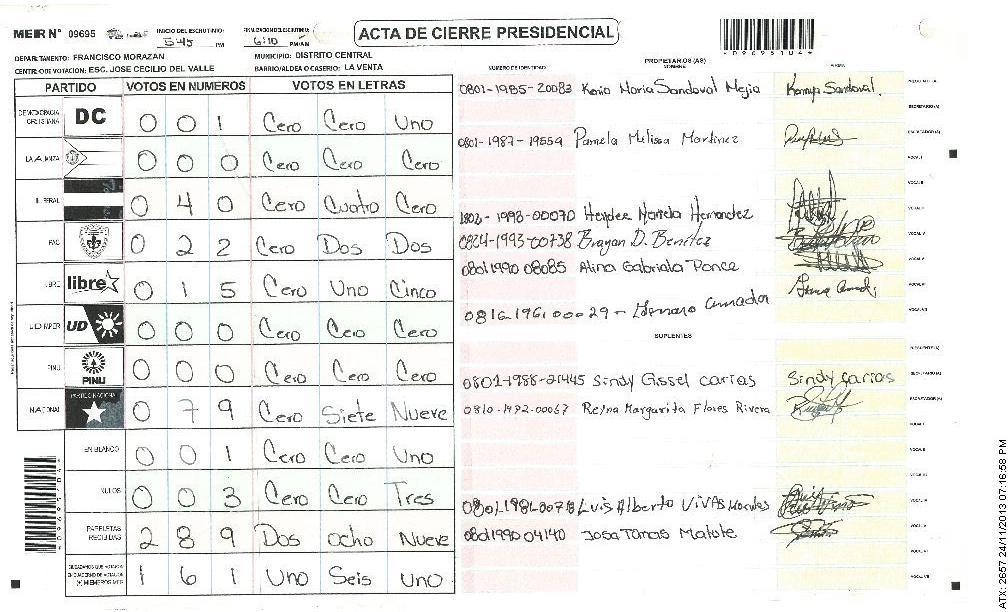 MEIR N° 09695
INICIO DEL ESCRUTINIO: 5:45 PM
FINALIZACION DEL ESCRUTINIO: 6:10 PM/AM
ACTA DE CIERRE PRESIDENCIAL
*09695104*
DEPARTAMENTO: FRANCISCO MORAZAN
MUNICIPIO: DISTRITO CENTRAL
CENTRO DE VOTACION: ESC. JOSE CECILIO DEL VALLE
BARRIO/ALDEA O CASERIO: LA VENTA
PARTIDO VOTOS EN NUMEROS VOTOS EN LETRAS
DEMOCRACIA CRISTIANA DC 0 0 1 Cero Cero Uno
LA ALIANZA 0 0 0 Cero Cero Cero
LIBERAL 0 4 0 Cero Cuatro Cero
PAC 0 2 2 Cero Dos Dos
LIBRE libre 0 1 5 Cero Uno Cinco
UD UD 0 0 0 Cero Cero Cero
PINU PINU 0 0 0 Cero Cero Cero
NACIONAL PARTIDO NACIONAL 0 7 9 Cero Siete Nueve
EN BLANCO 0 0 1 Cero Cero Uno
NULOS 0 0 3 Cero Cero Tres
PAPELETAS RECIBIDAS 2 8 9 Dos ocho Nueve
1 6 1 Uno Seis Uno
NUMERO DE IDENTIDAD PROPIETARIOS (AS) NOMBRE FIRMA
0801-1985-20083 Karia Maria Sandoval Mejia Sandoval.
0801-1987-19559 Pamela Melissa Martinez
1802-1998-00070 Hernandez
0824-1993-00738 Brayan D. Benitez
0801 1990 08085 Alina Gabriela Ponce
0816 1961 000 29 - Amador
SUPLENTES
0801-1988-21445 Sindy Gissel carias Sindy Carias
0810-1972-00067 Reyna Margarita Flores Rivera
Luis Alberto VIVAS Morales
0801 1990 04140 Jose Tomas Matute
PRESIDENTE (A)
SECRETARIO (A)
ESCRUTADOR (A)
VOCAL I
VOCAL II
ATX: 2657 24/11/2013 07:16:58 PM